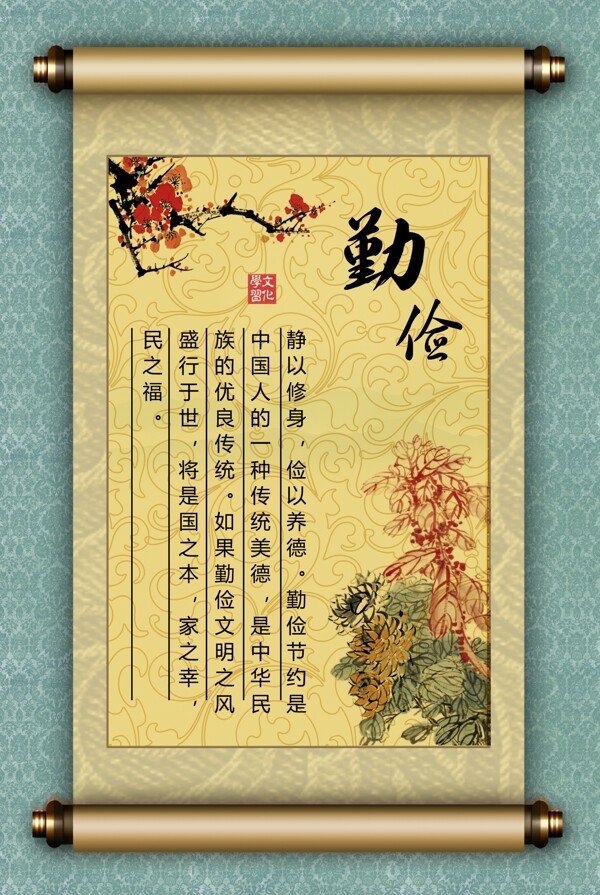 勤俭
文化
學習
静以修身，俭以养德。勤俭节约是
中国人的一种传统美德，是中华民
族的优良传统。如果勤俭文明之风
盛行于世，将是国之本，家之幸，
民之福。